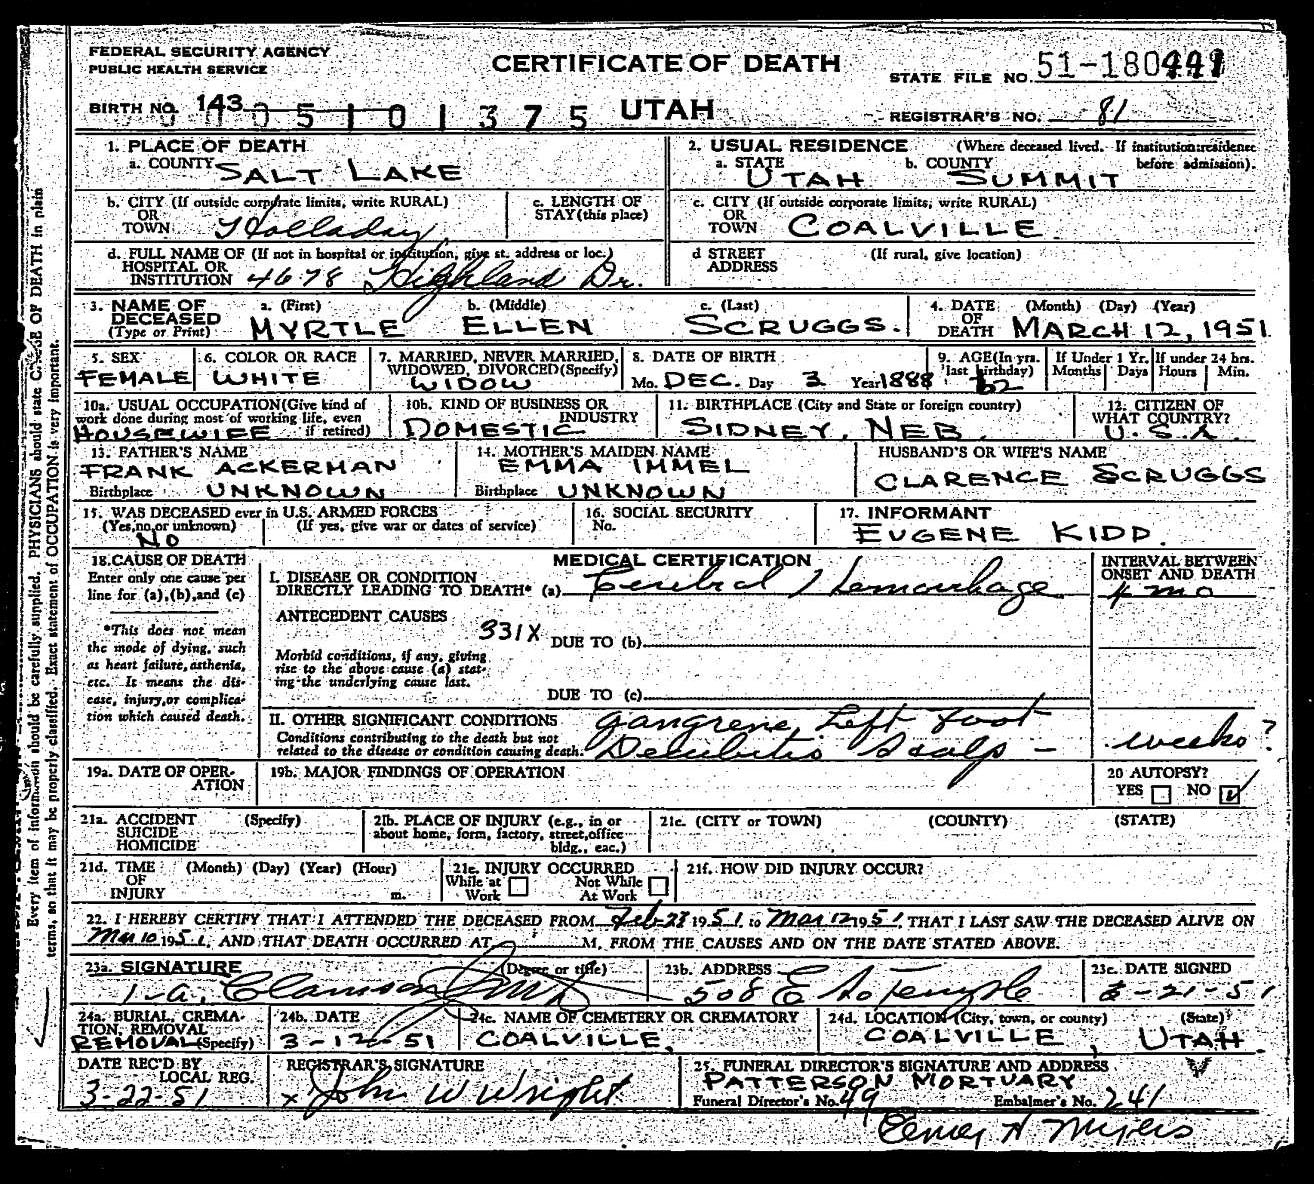 FEDERAL SECURITY AGENCY
PUBLIC HEALTH SERVICE
CERTIFICATE OF DEATH
UTAH
STATE FILE NO. 51-180
BIRTH NO. 143
05101375
REGISTRAR'S NO. 81
1. PLACE OF DEATH
a. COUNTY SALT LAKE
2. USUAL RESIDENCE (Where deceased lived. If institution: residence before admission).
a. STATE UTAH b. COUNTY SUMMIT
b. CITY (If outside corporate limits, write RURAL)
OR
TOWN Holladay
c. LENGTH OF
STAY (this place)
c. CITY (If outside corporate limits, write RURAL)
OR
TOWN COALVILLE
d. FULL NAME OF (If not in hospital or institution, give st. address or loc.)
HOSPITAL OR
INSTITUTION 4678 Highland Dr.
d STREET (If rural, give location)
ADDRESS
3. NAME OF DECEASED (Type or Print)
a. (First) b. (Middle) c. (Last)
MYRTLE ELLEN SCRUGGS.
4. DATE OF DEATH (Month) (Day) (Year)
MARCH 12, 1951
5. SEX
FEMALE
6. COLOR OR RACE
WHITE
7. MARRIED, NEVER MARRIED,
WIDOWED, DIVORCED (Specify)
WIDOW
8. DATE OF BIRTH
Mo. DEC. Day 3 Year 1888
9. AGE (In yrs. last birthday)
62
If Under 1 Yr. Months Days
If under 24 hrs. Hours Min.
10a. USUAL OCCUPATION (Give kind of
work done during most of working life, even
if retired)
HOUSEWIFE
10b. KIND OF BUSINESS OR
INDUSTRY
DOMESTIC
11. BIRTHPLACE (City and State or foreign country)
SIDNEY, NEB.
12. CITIZEN OF
WHAT COUNTRY?
U.S.A.
13. FATHER'S NAME
FRANK ACKERMAN
Birthplace UNKNOWN
14. MOTHER'S MAIDEN NAME
EMMA IMMEL
Birthplace UNKNOWN
HUSBAND'S OR WIFE'S NAME
CLARENCE SCRUGGS
15. WAS DECEASED ever in U.S. ARMED FORCES
(Yes, no, or unknown) (If yes, give war or dates of service)
NO
16. SOCIAL SECURITY
No.
17. INFORMANT
EUGENE KIDD.
18. CAUSE OF DEATH
Enter only one cause per
line for (a), (b), and (c)
*This does not mean
the mode of dying, such
as heart failure, asthenia,
etc. It means the dis-
ease, injury, or complica-
tion which caused death.
MEDICAL CERTIFICATION
I. DISEASE OR CONDITION
DIRECTLY LEADING TO DEATH* (a) Cerebral Hemorrhage
INTERVAL BETWEEN
ONSET AND DEATH
4 mo
ANTECEDENT CAUSES
331X
DUE TO (b)
Morbid conditions, if any, giving
rise to the above cause (a) stat-
ing the underlying cause last.
DUE TO (c)
II. OTHER SIGNIFICANT CONDITIONS
Conditions contributing to the death but not
related to the disease or condition causing death.
gangrene Left Foot
Decubitis Scalp -
weeks?
19a. DATE OF OPER-
ATION
19b. MAJOR FINDINGS OF OPERATION
20 AUTOPSY?
YES NO
21a. ACCIDENT (Specify)
SUICIDE
HOMICIDE
21b. PLACE OF INJURY (e.g., in or
about home, form, factory, street, office
bldg., eac.)
21c. (CITY or TOWN) (COUNTY) (STATE)
21d. TIME (Month) (Day) (Year) (Hour)
OF
INJURY m.
21e. INJURY OCCURRED
While at Work Not While At Work
21f. HOW DID INJURY OCCUR?
22. I HEREBY CERTIFY THAT I ATTENDED THE DECEASED FROM 1951, to Mar 12 1951, THAT I LAST SAW THE DECEASED ALIVE ON
Mar 10 1951, AND THAT DEATH OCCURRED AT M, FROM THE CAUSES AND ON THE DATE STATED ABOVE.
23a. SIGNATURE (Degree or title)
23b. ADDRESS
508 E So Temple
23c. DATE SIGNED
3-21-51
24a. BURIAL, CREMA-
TION, REMOVAL
REMOVAL (Specify)
24b. DATE
3-12-51
24c. NAME OF CEMETERY OR CREMATORY
COALVILLE,
24d. LOCATION (City, town, or county) (State)
COALVILLE, UTAH.
DATE REC'D BY
LOCAL REG.
3-22-51
REGISTRAR'S SIGNATURE
x John W Wright
25. FUNERAL DIRECTOR'S SIGNATURE AND ADDRESS
PATTERSON MORTUARY
Funeral Director's No. 49 Embalmer's No. 241
Myers
Every item of information should be carefully supplied. PHYSICIANS should state CAUSE OF DEATH in plain
terms, so that it may be properly classified. Exact statement of OCCUPATION is very important.